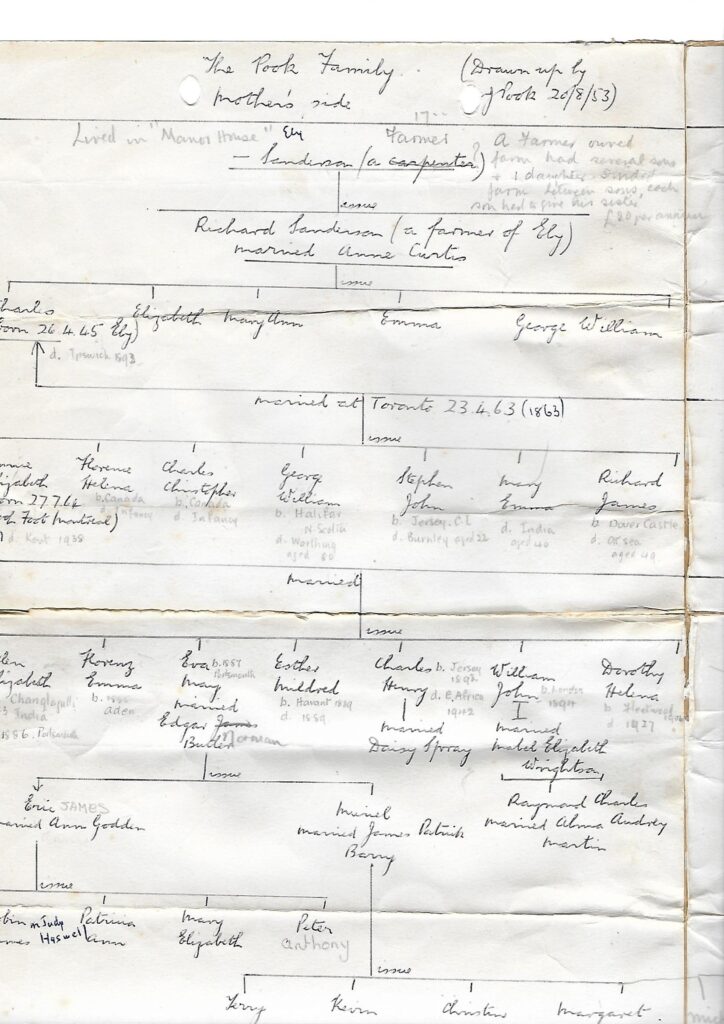 The Pook Family.
(Drawn up by
Mother's side
J Pook 20/8/53)
17--
Lived in "Manor House" Ely
Farmer
- Sanderson (a carpenter)
? A Farmer owned
farm had several sons
+ 1 daughter.
farm between sons, each
son had to give his sister
£80 per annum
issue
Richard Sanderson (a farmer of Ely)
married Anne Curtis
issue
Charles
Elizabeth
Mary Ann
Emma
George William
born 26.4.45 Ely)
d. Ipswich 1893
married at Toronto 23.4.63 (1863)
issue
nnie
lizabeth
orn 27.7.64
Foot Montreal)
d. Kent 1938
Florence
Helena
b. Canada
d. Infancy
Charles
Christopher
b. Canada
d. Infancy
George
William
b. Halifax
N. Scotia
d. Worthing
aged 80
Stephen
John
b. Jersey. C.I.
d. Burnley aged 22
Mary
Emma
d. India
aged 40
Richard
James
b. Dover Castle
d. at sea
aged 49
Married
issue
len
lizabeth
India
1886. Portsmouth
Florenz
Emma
b.
Aden
Eva b. 1887
Portsmouth
May
married
Edgar James
Norman
Butler
Esther
Mildred
b. Havant 1889
d. 1889
Charles
Henry
b. Jersey
1892
d. E. Africa
1942
married
Daisy Spray
William
John
b. London
1894
married
Mabel Elizabeth
Wrightson
Dorothy
Helena
d. 1937
issue
Eric JAMES
married Ann Godden
Muriel
married James Patrick
Barry
Raymond Charles
married Alma Audrey
Martin
issue
obin m Judy
ames Haswell
Patricia
Ann
Mary
Elizabeth
Peter
Anthony
issue
Terry
Kevin
Christine
Margaret